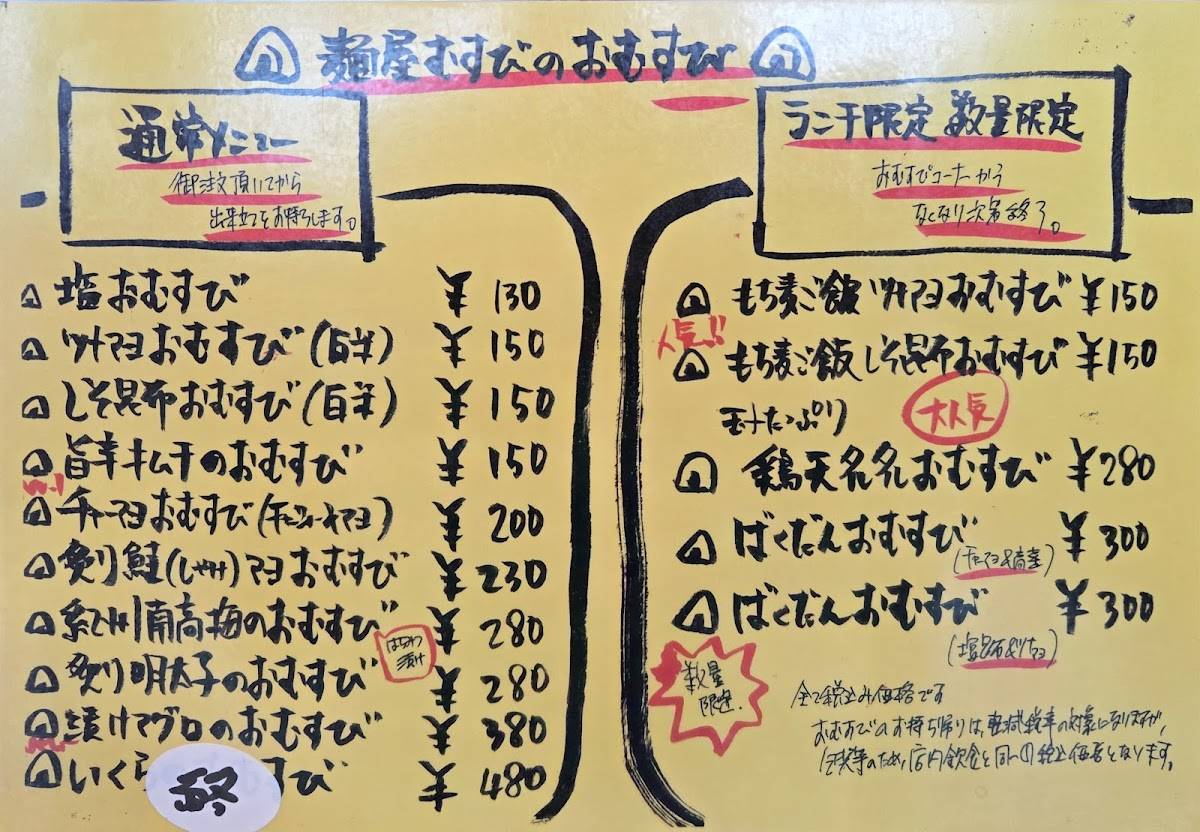 麺屋むすびのおむすび
通常メニュー
御注文頂いてから
出来立てをお持ちします。
塩おむすび ¥130
ツナマヨおむすび(白米) ¥150
しそ昆布おむすび(白米) ¥150
旨辛キムチのおむすび ¥150
チャーマヨおむすび(チャーシューマヨ) ¥200
炙り鮭(しゃけ)マヨおむすび ¥230
紀州南高梅のおむすび ¥280
はちみつ
漬け
炙り明太子のおむすび ¥280
漬けマグロのおむすび ¥380
いくら すび ¥480
終
ランチ限定 数量限定
おむすびコーナーから
なくなり次第終了。
もち麦ご飯 ツナマヨおむすび ¥150
人気!!
もち麦ご飯 しそ昆布おむすび ¥150
大人気
鶏天むすおむすび ¥280
ばくだんおむすび ¥300
ばくだんおむすび ¥300
数量
限定
全て税込み価格です
おむすびのお持ち帰りは軽減税率の対象になりますが、
店内飲食と同一の税込価格となります。